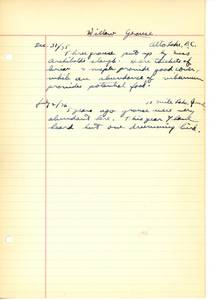 Willow Grouse
Dec. 31/75 Alta Lake, B.C.
Three grouse put up by
Archibalds slough. Here thickets of
briar & maple provide good cover,
while an abundance of viburnum
provides potential food.
July 2/76 10 mile Lake,
5 years ago grouse were very
abundant here. This year I have
heard but one drumming bird.